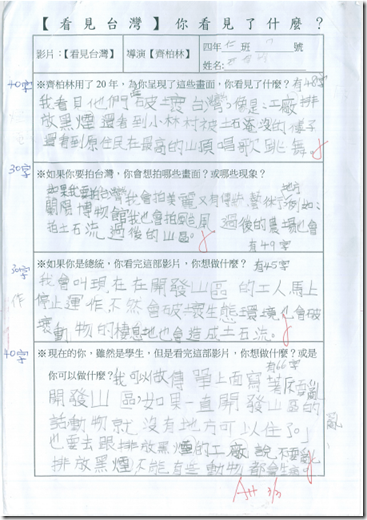 【看見台灣】你看見了什麼？
影片：【看見台灣】 導演【齊柏林】 四年仁班 號
姓名：
40字 ※齊柏林用了20年，為你呈現了這些畫面，你看見了什麼？有48字
我看見他們破壞台灣。像是：工廠排
放黑煙 還看到小林村被土石淹沒的樣子
還看到原住民在最高的山頂唱歌跳舞。
30字 ※如果你要拍台灣，你會想拍哪些畫面？或哪些現象？
如果我要拍台灣，我會拍美麗又有傳統藝術 地方 例如：
蘭陽博物館 我也會拍颱風 過後的農場也會
拍土石流過後的山區。 有49字
30字 ※如果你是總統，你看完這部影片，你想做什麼？有45字
我會叫現在在開發山區的工人馬上
停止運作 不然會破壞生態環境也會破
壞動物的棲息地也會造成土石流。
作
40字 ※現在的你，雖然是學生，但是看完這部影片，你想做什麼？或是
你可以做什麼？ 有66字
我可以做傳單上面寫著「不要亂
開發山區 如果一直開發山區的
話動物就沒有地方可以住了。」
也要去跟排放黑煙的工廠說不要亂
排放黑煙 不然有些動物都會生病。
亂
3/31